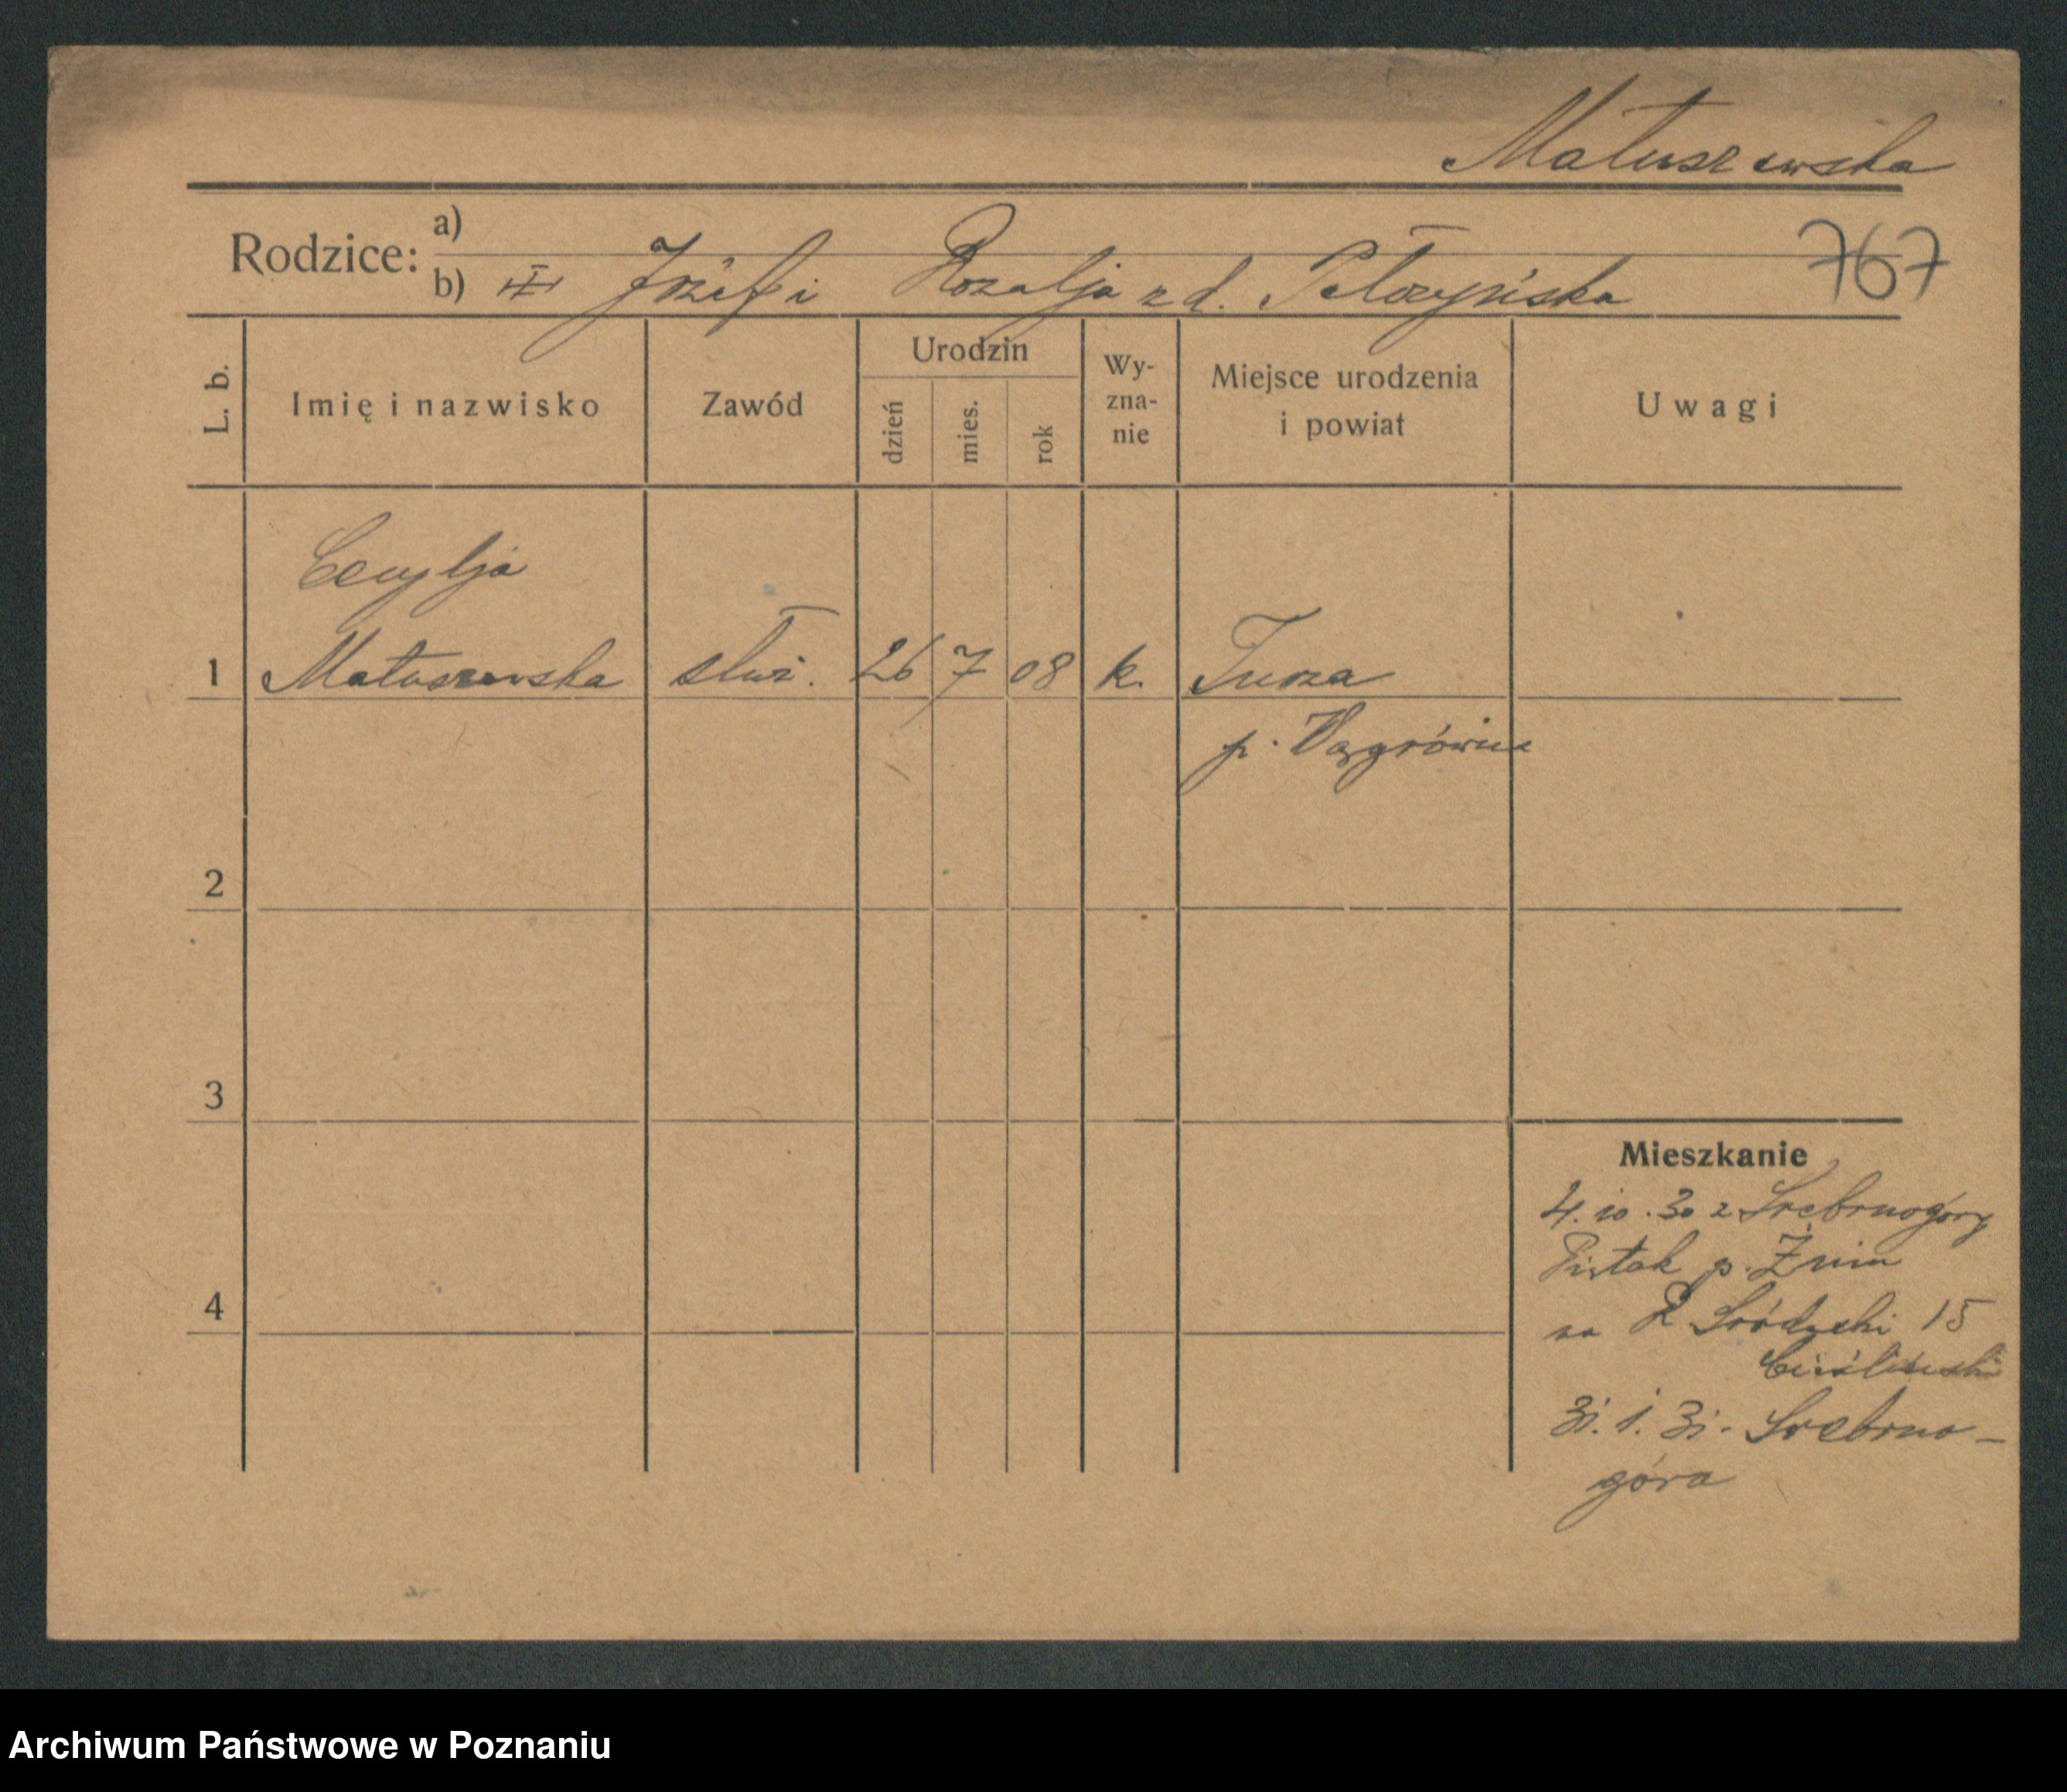 Matuszewska
Rodzice:
a)
b) III Józef i Rozalja z d. Pełczyńska
767
L. b.
Imię i nazwisko
Zawód
Urodzin
dzień
mies.
rok
Wy-
zna-
nie
Miejsce urodzenia
i powiat
Uwagi
Cecylja
1 Matuszewska służ. 26 7 08 k. Turza
p. Wągrówiec
2
3
4
Mieszkanie
4. 10. 30 z Srebrnogóry
p. Żnin
na R. Śródecki 15
31. 1. 31. Srebrno-
góra
Archiwum Państwowe w Poznaniu